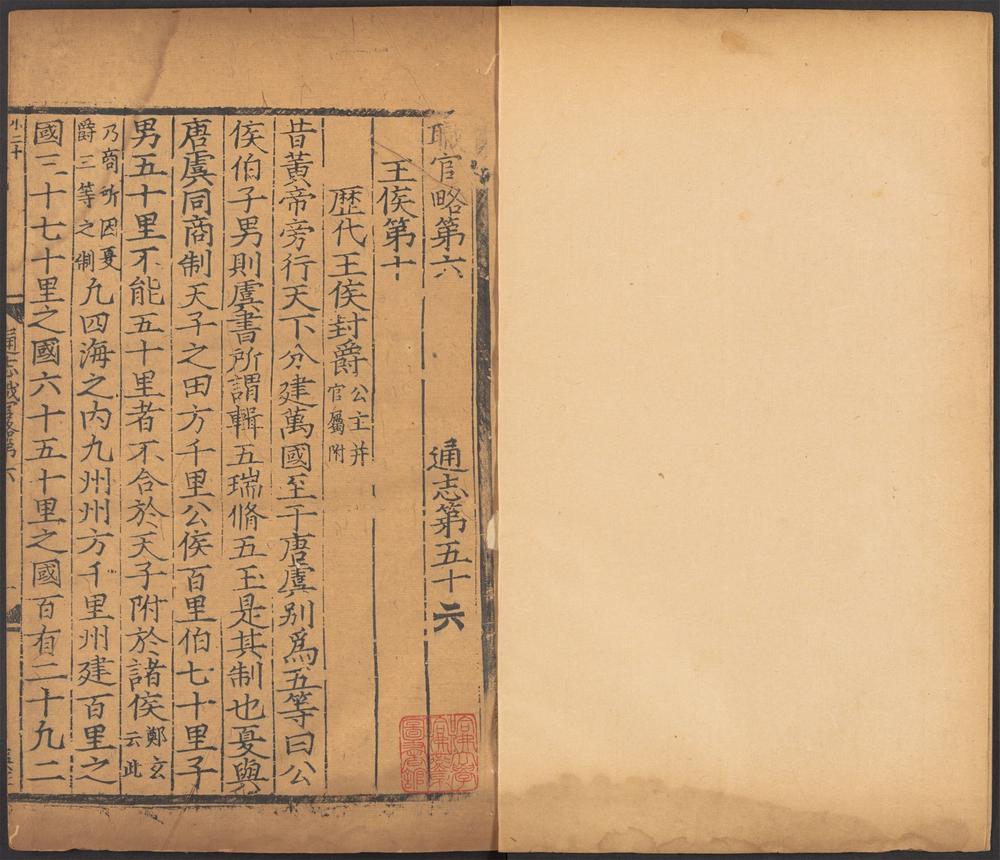 職官略第六　通志第五十六
王侯第十
歷代王侯封爵公主并官屬附
昔黃帝旁行天下分建萬國至于唐虞别爲五等曰公
侯伯子男則虞書所謂輯五瑞脩五玉是其制也夏與
唐虞同商制天子之田方千里公侯百里伯七十里子
男五十里不能五十里者不合於天子附於諸侯鄭玄云此
乃商所因夏爵三等之制凢四海之内九州州方千里州建百里之
國三十七十里之國六十五十里之國百有二十九二
通志職官略第六
哈佛大學哈佛燕京圖書館